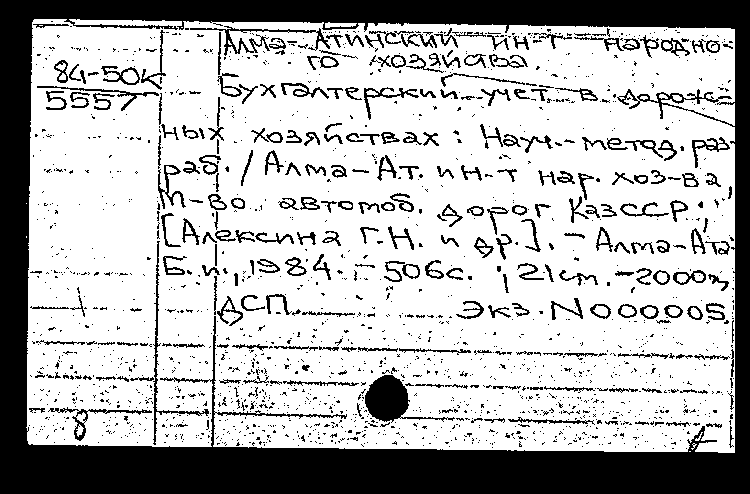 Алма-Атинский ин-т народно-
го хозяйства.
84-50К
5557
Бухгалтерский учет в дорож-
ных хозяйствах: Науч.-метод. раз-
раб. / Алма-Ат. ин-т нар. хоз-ва,
М-во автомоб. дорог КазССР;
[Алексина Г.Н. и др.]. - Алма-Ата:
Б.и., 1984. - 506с.; 21см. - 2000э,
ДСП Экз. N000005
8